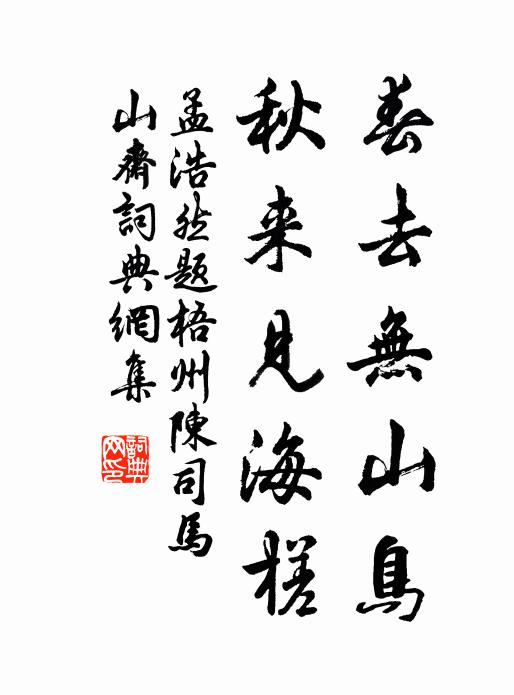 春去無山鳥
秋来見海槎
孟浩然題梧州陳司馬
山齋詞典網集
詞典网印